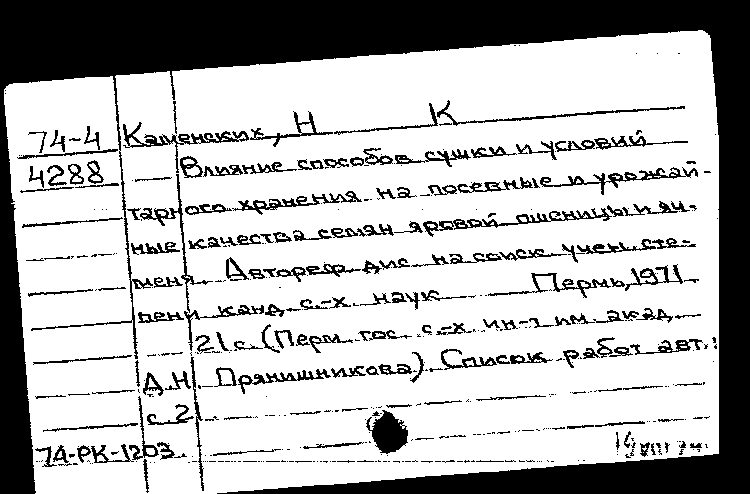 74-4 Каменских, Н К
4288 Влияние способов сушки и условий
тарного хранения на посевные и урожай-
ные качества семян яровой пшеницы и яч-
меня. Автореф. дис. на соиск. учен. сте-
пени канд. с.-х. наук Пермь, 1971
21 с. (Перм. гос. с.-х. ин-т им. акад.
Д.Н. Прянишникова). Список работ авт.:
с. 21.
74-РК-1203. 19 VIII 74.